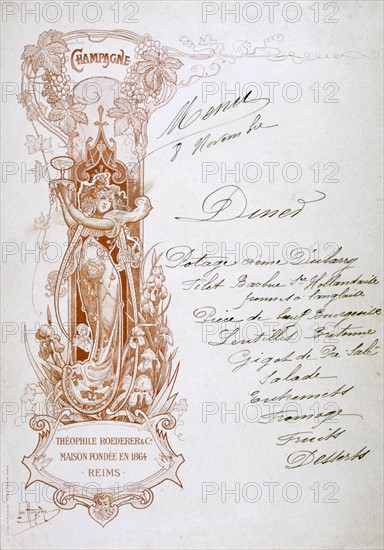 CHAMPAGNE
Menu
8 Novembre
Diner
Potage crème Dubarry
Filet Barbue Sce Hollandaise
pommes à l'anglaise
Pièce de bœuf Bourgeoise
Lentilles Bretonne
Gigot de Pré Salé
Salade
Entremets
Fromage
Fruits
Desserts
THÉOPHILE ROEDERER & Co
MAISON FONDÉE EN 1864
REIMS
PHOTO12